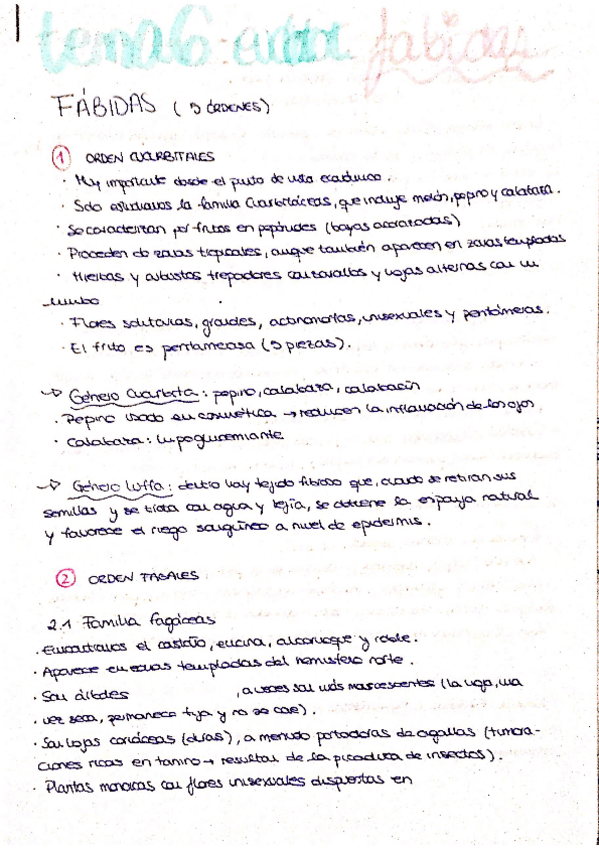 tema 6: fabidas
FÁBIDAS (5 ÓRDENES)
1 ORDEN CUCURBITALES
· Muy importante desde el punto de vista económico.
· Solo estudiamos la familia Cucurbitáceas, que incluye melón, pepino y calabaza.
· Se caracterizan por frutos en pepónides (bayas acorazadas)
· Proceden de zonas tropicales, aunque también aparecen en zonas templadas
· Hierbas y arbustos trepadores con zarcillos y hojas alternas con un
limbo
· Flores solitarias, grandes, actinomorfas, unisexuales y pentámeras.
· El fruto es pentámeras (5 piezas).
→ Género Cucurbita: pepino, calabaza, calabacín
· Pepino usado en cosmética → reducen la inflamación de los ojos
· Calabaza: hipoglucemiante
→ Género Luffa: dentro hay tejido fibroso que, cuando se retiran sus
semillas y se trata con agua y lejía, se obtiene la esponja natural
y favorece el riego sanguíneo a nivel de epidermis.
2 ORDEN FAGALES
2.1 Familia fagáceas
· Encontramos el castaño, encina, alcornoque y roble.
· Aparece en zonas templadas del hemisferio norte.
· Son árboles , a veces son más marcescentes (la hoja, una
· vez seca, permanece fija y no se cae).
· Son hojas coriáceas (duras), a menudo portadoras de agallas (tumora-
ciones ricas en tanino → resultan de la picadura de insectos).
· Plantas monoicas con flores unisexuales dispuestas en